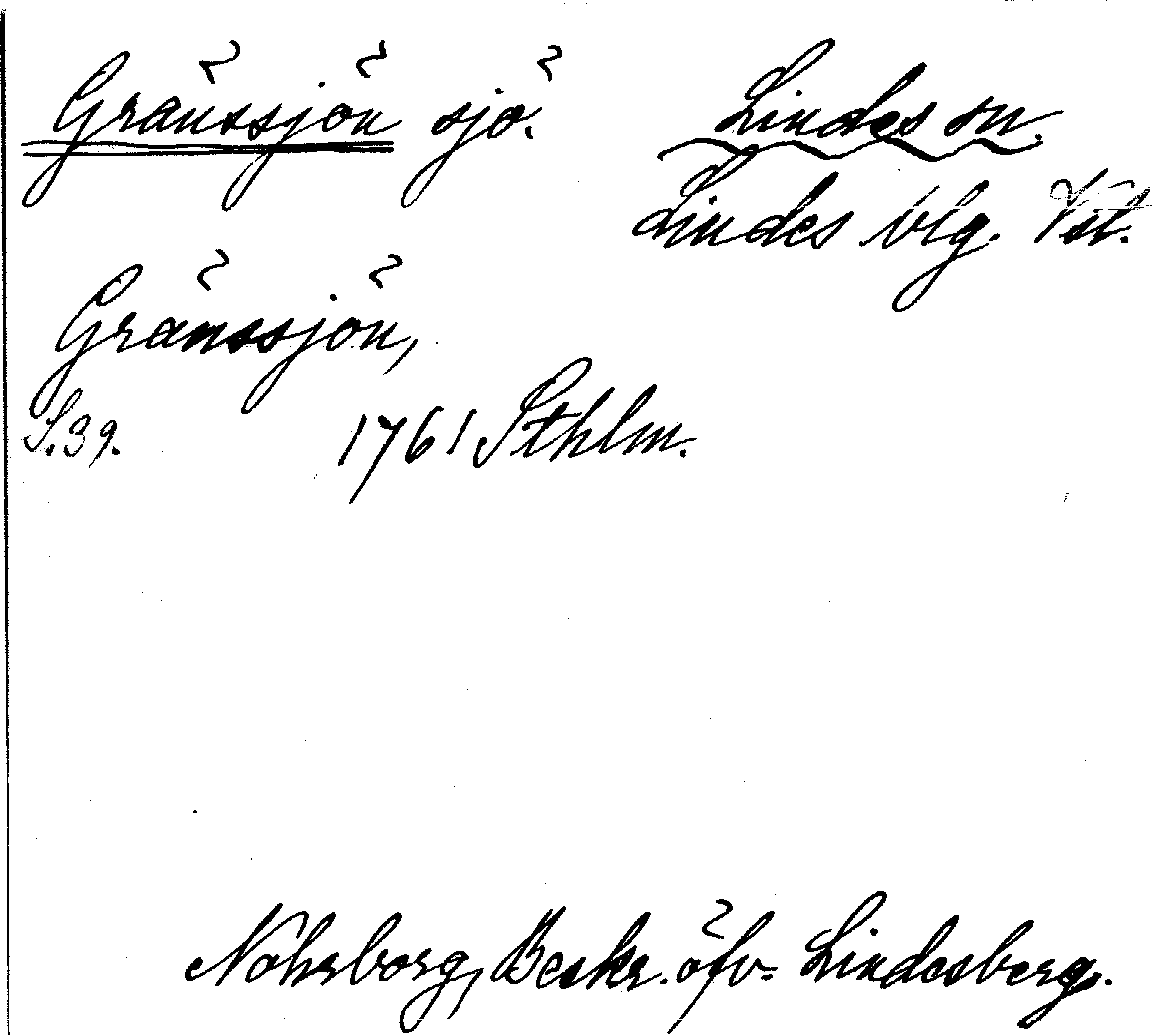 Gränssjön sjö. Lindes sn.
Lindes blg. Vstl.
Gränssjön,
S.39. 1761 Sthlm.
Nohrborg, Beskr. öfv. Lindesberg.